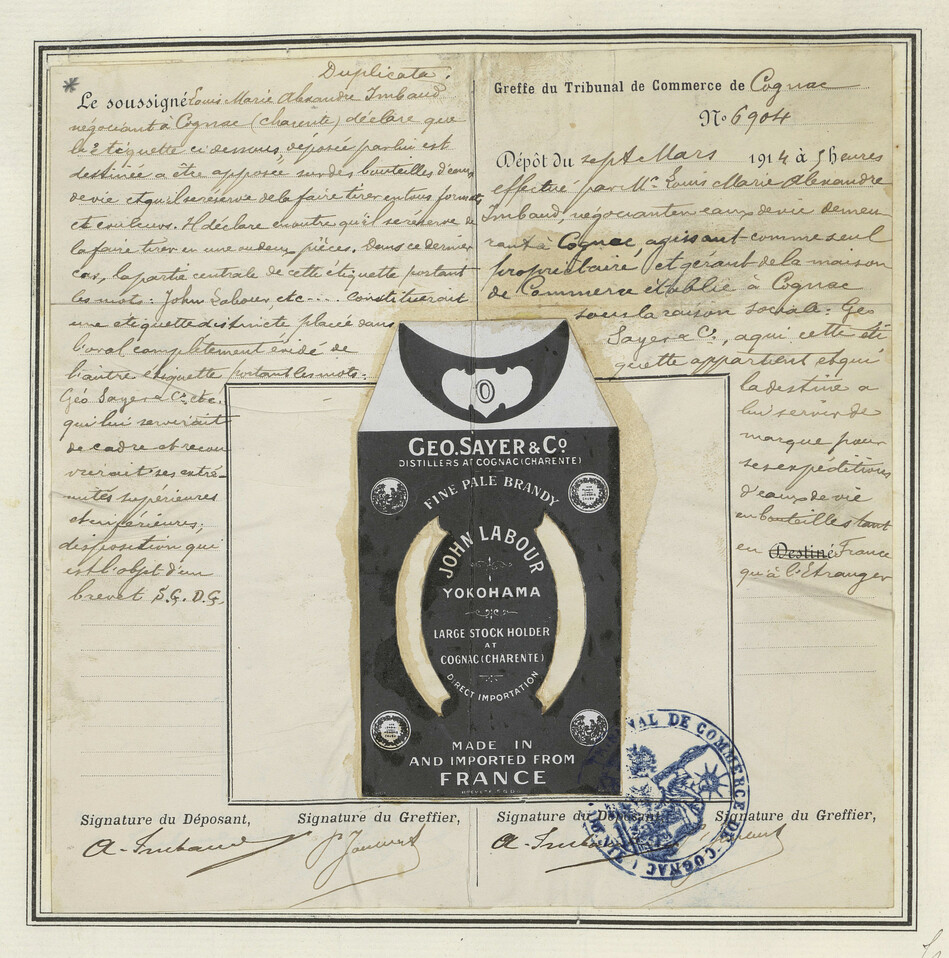 Duplicata.
Le soussigné Louis Marie Alexandre Imbaud
négociant à Cognac (charente) déclare que
la 2e étiquette ci dessous, déposée par lui est
destinée a être apposée sur des bouteilles d'eaux
de vie et qu'il se réserve de la faire tirer en tous formats
et couleurs. Il déclare en outre qu'il se réserve de
la faire tirer en une ou deux pièces. Dans ce dernier
cas, la partie centrale de cette étiquette portant
les mots: John Labour, etc.... constituerait
une etiquette distincte placée dans
l'oval complètement évidé de
l'autre etiquette portant les mots:
Géo Sayer & Co, etc.
qui lui servirait
de cadre et recou
vrirait ses extré-
mités supérieures
et inférieures;
disposition qui
est l'objet d'un
brevet S.G.D.G.
Greffe du Tribunal de Commerce de Cognac
No 6904
Dépôt du sept Mars 1914 à 5 heures
effectué par Mr Louis Marie Alexandre
Imbaud, négociant en eaux de vie demeu
rant à Cognac, agissant comme seul
propriétaire, et gérant de la maison
de Commerce établie à Cognac
sous la raison sociale: Geo
Sayer & Co, a qui cette éti
quette appartient et qui
la destine a
lui servir de
marque pour
ses expéditions
d'eaux de vie
en bouteilles tant
en Destiné France
qu'à l'Etranger
GEO. SAYER & CO
DISTILLERS AT COGNAC (CHARENTE)
FINE PALE BRANDY
JOHN LABOUR
YOKOHAMA
LARGE STOCK HOLDER
AT
COGNAC (CHARENTE)
DIRECT IMPORTATION
MADE IN
AND IMPORTED FROM
FRANCE
TRIBUNAL DE COMMERCE DE COGNAC
Signature du Déposant, Signature du Greffier,
A. Imbaud
Signature du Déposant, Signature du Greffier,
A. Imbaud